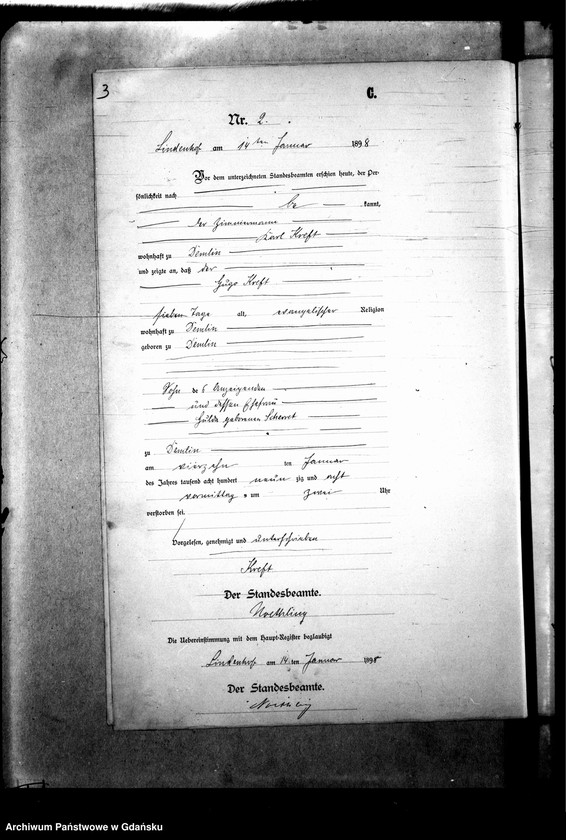 3
C.
Nr. 2.
Lindenhof am 14ten Januar 1898
Vor dem unterzeichneten Standesbeamten erschien heute, der Per-
sönlichkeit nach
be kannt,
der Zimmermann
Karl Kreft
wohnhaft zu Demlin
und zeigte an, daß der
Hugo Kreft
sieben Tage alt, evangelischer Religion
wohnhaft zu Demlin
geboren zu Demlin
Sohn des Anzeigenden
und dessen Ehefrau
Hulda geborenen
zu Demlin
am vierzehn ten Januar
des Jahres tausend acht hundert neun zig und acht
vormittags um zwei Uhr
verstorben sei.
Vorgelesen, genehmigt und unterschrieben
Kreft
Der Standesbeamte.
Noethling
Die Uebereinstimmung mit dem Haupt-Register beglaubigt
Lindenhof am 14ten Januar 1898
Der Standesbeamte.
Noethling
Archiwum Państwowe w Gdańsku